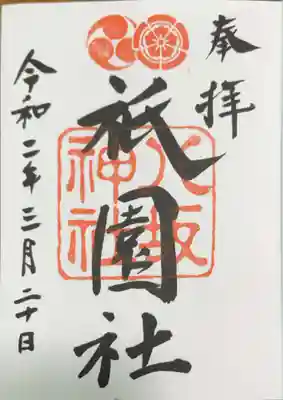 奉拝
祇園社
八坂神社
令和二年三月二十日